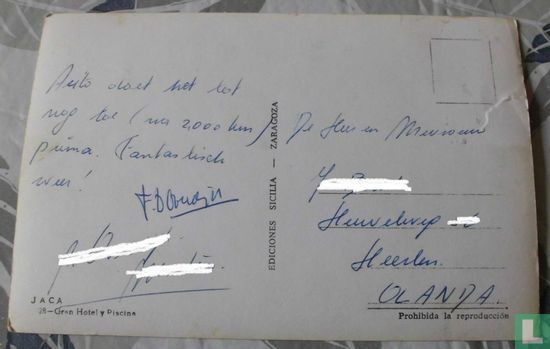 Auto doet het tot
nog toe (na 2000 km)
prima. Fantastisch
weer!
De Heer en Mevrouw
Heerlen
OLANDA.
EDICIONES SICILIA — ZARAGOZA
JACA
28—Gran Hotel y Piscina
Prohibida la reproducción